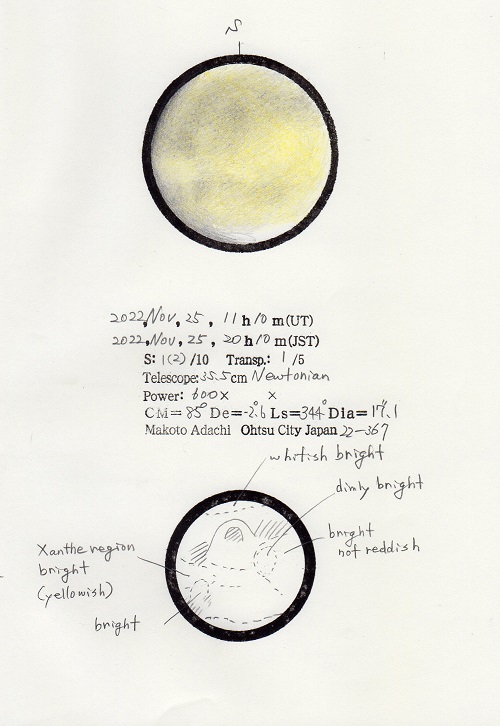 S
2022, Nov, 25, 11 h 10 m (UT)
2022, Nov, 25, 20 h 10 m (JST)
S: 1(2) /10 Transp.: 1 /5
Telescope: 35.5 cm Newtonian
Power: 600× ×
CM=85° De=-2.6° Ls=344° Dia=17.1"
Makoto Adachi Ohtsu City Japan 22-367
whitish bright
dimly bright
bright
not reddish
Xanthe region
bright
(yellowish)
bright